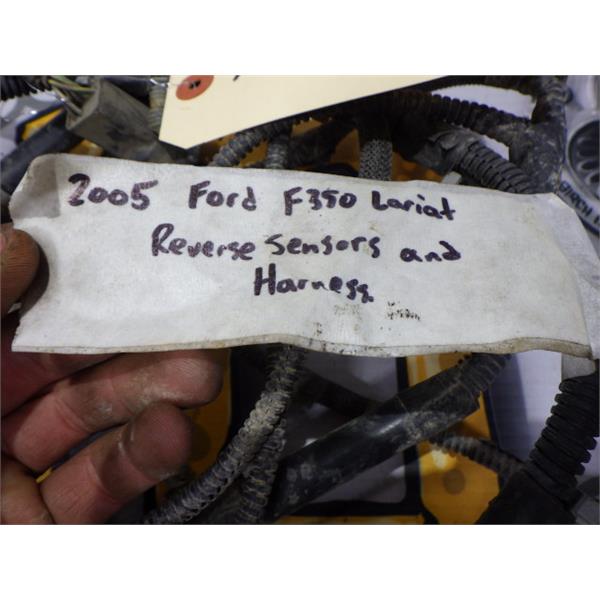 2005 Ford F350 Lariat
Reverse Sensors and
Harness